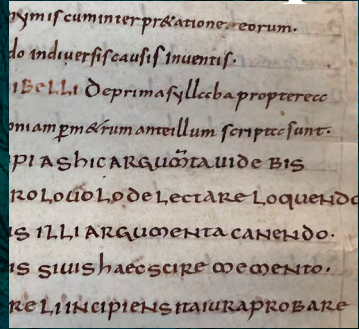 nymis cum interpretatione eorum.
do indiversis causis inventis.
IBELLI De prima syllaba propterea
oniam permetrum ante illum scripta sunt.
PI AS hIC ARGUmTA UIDE BIS
ROLOGIO LODELECTARE LOQUENDO
IS ILLI ARGUMENTA CANENDO.
IS SIUIS hAEC SCIRE MEMENTO.
RE LI INCIPIENS ITA IURA PROBARE